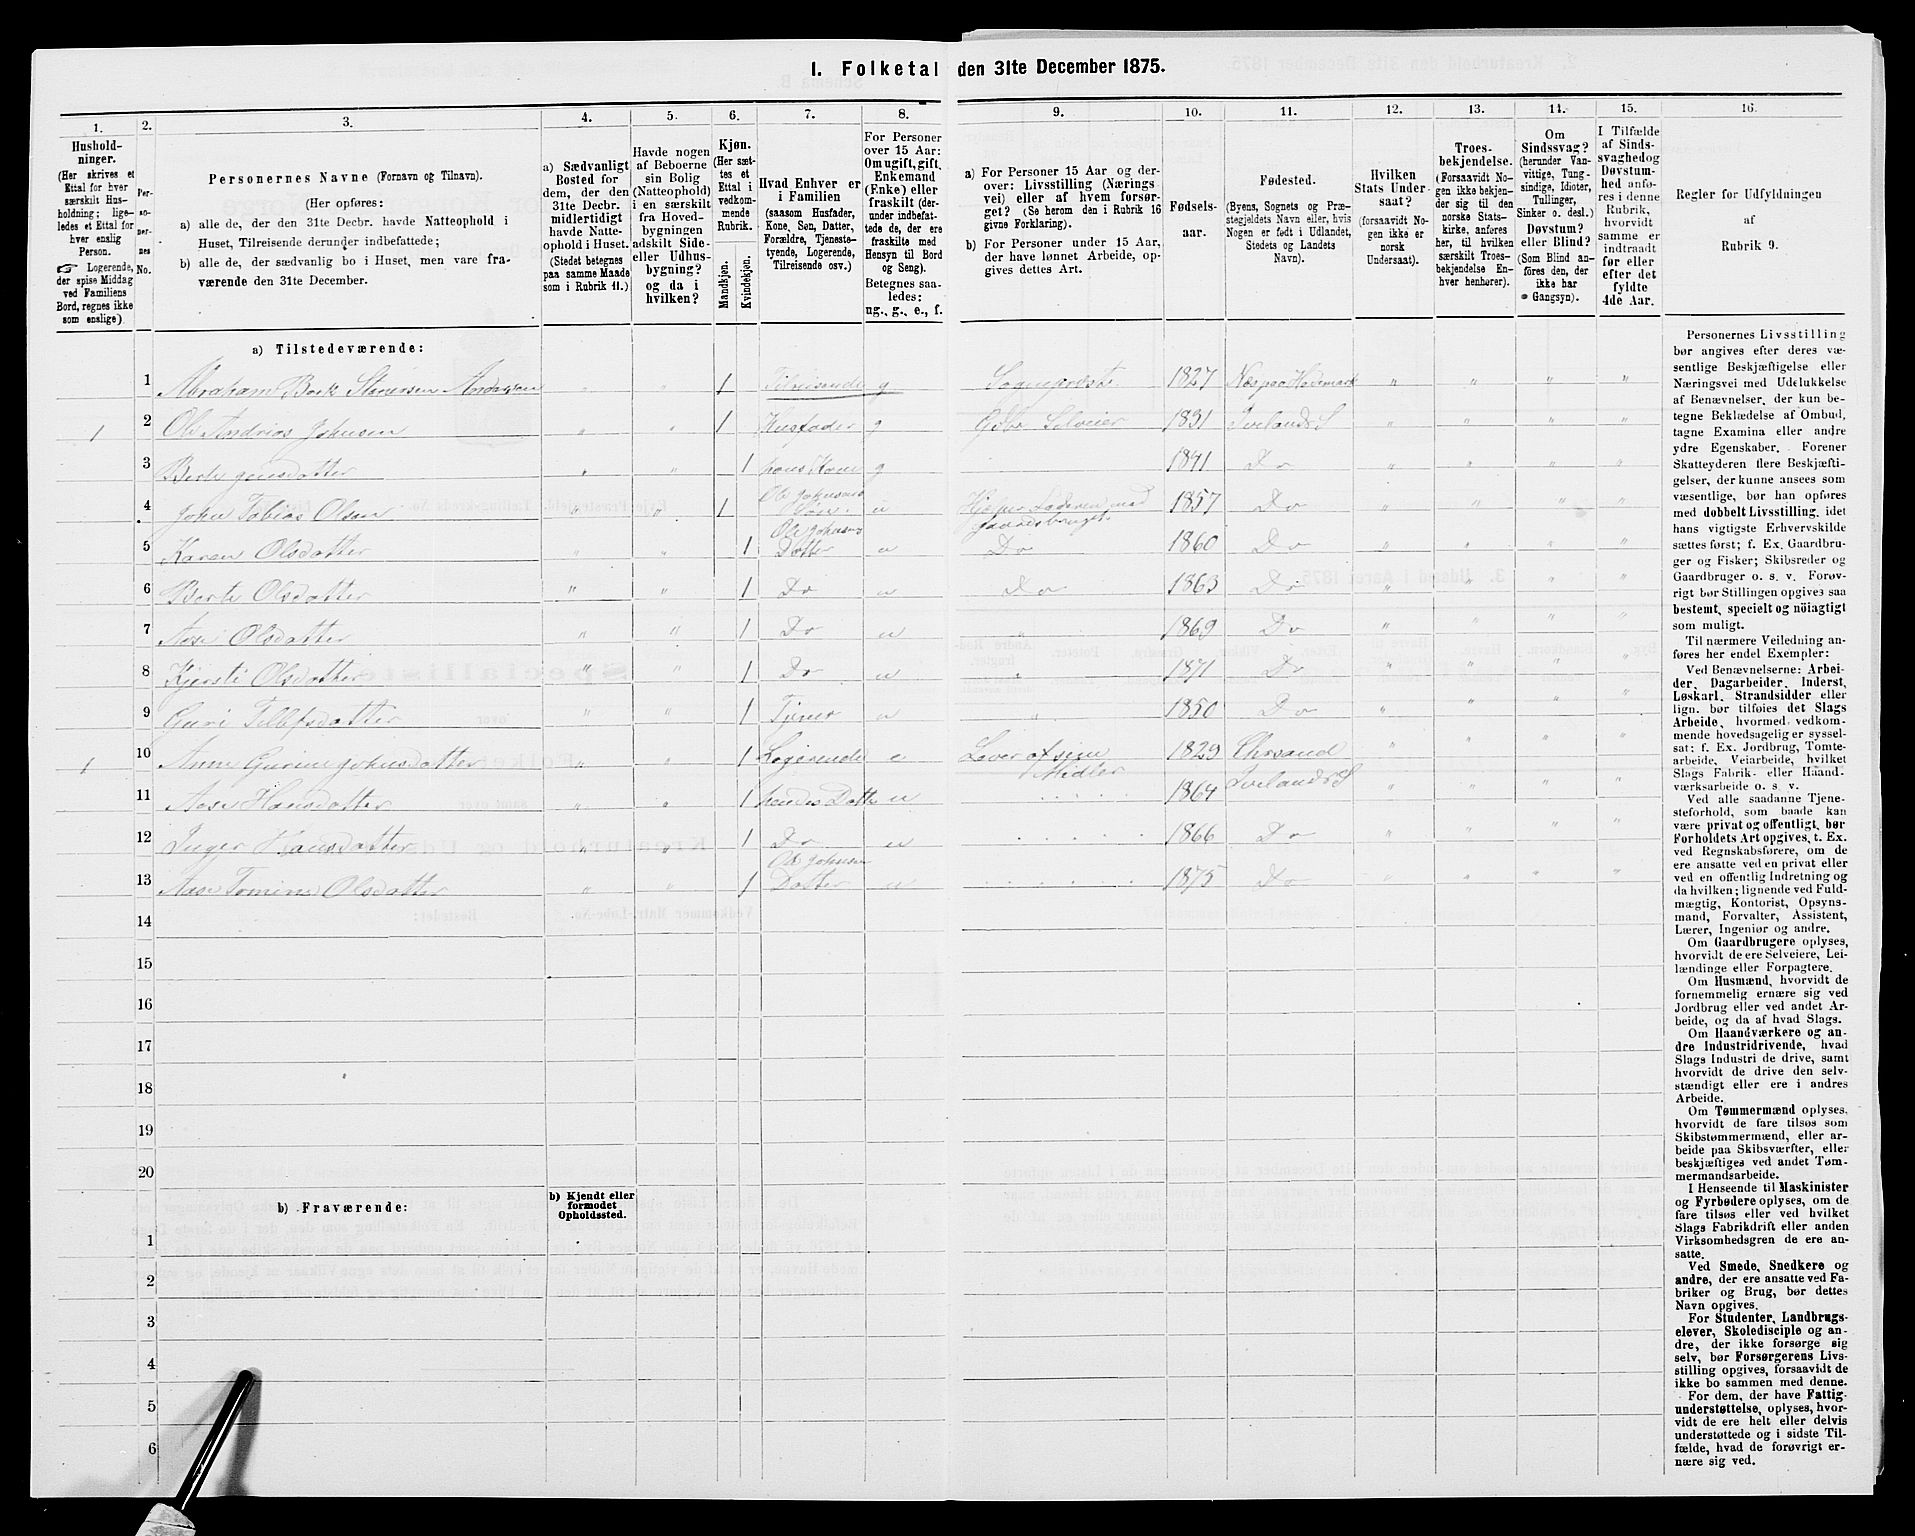 I. Folketal den 31te December 1875.
1. 2. 3. 4. 5. 6. 7. 8. 9. 10. 11. 12. 13. 14. 15. 16.
Husholdninger.
(Her skrives et
Ettal for hver
særskilt Husholdning;
ligeledes et Ettal for
hver enslig
Person.
☞ Logerende,
der spise Middag
ved Familiens
Bord, regnes ikke
som enslige).
Personernes
No.
Personernes Navne (Fornavn og Tilnavn).
(Her opføres:
a) alle de, der den 31te Decbr. havde Natteophold i
Huset, Tilreisende derunder indbefattede;
b) alle de, der sædvanlig bo i Huset, men vare fraværende
den 31te December.
a) Sædvanligt
Bosted for
dem, der den
31te Decbr.
midlertidigt
havde Natteophold
i Huset.
(Stedet betegnes
paa samme Maade
som i Rubrik 11.)
Havde nogen
af Beboerne
sin Bolig
(Natteophold)
i en særskilt
fra Hovedbygningen
adskilt Side-
eller Udhusbygning?
og da i
hvilken?
Kjøn.
(Her sættes
et
Ettal i
vedkommende
Rubrik.
Mandkjøn.
Kvindekjøn.
Hvad Enhver er
i Familien
(saasom Husfader,
Kone, Søn, Datter,
Forældre, Tjenestetyende,
Logerende,
Tilreisende osv.)
For Personer
over 15 Aar:
Om ugift, gift,
Enkemand
(Enke) eller
fraskilt (derunder
indbefattede
de, der ere
fraskilte med
Hensyn til Bord
og Seng).
Betegnes saaledes:
ug., g., e., f.
a) For Personer 15 Aar og derover:
Livsstilling (Næringsvei)
eller af hvem forsørget?
(Se herom den i Rubrik 16
givne Forklaring).
b) For Personer under 15 Aar,
der have lønnet Arbeide, opgives
dettes Art.
Fødselsaar.
Fødested.
(Byens, Sognets og Præstegjeldets
Navn eller, hvis
Nogen er født i Udlandet,
Stedets og Landets
Navn).
Hvilken
Stats Undersaat?
(forsaavidt Nogen
ikke er
norsk
Undersaat).
Troesbekjendelse.
(Forsaavidt Nogen
ikke bekjender
sig til den
norske Statskirke,
anføres
her, til hvilken
særskilt Troesbekjendelse
Enhver
henhører).
Om
Sindssvag?
(herunder Vanvittige,
Tungsindige,
Idioter,
Tullinger,
Sinker o. desl.)
Døvstum?
eller Blind?
(Som Blind anføres
den, der
ikke har
Gangsyn).
I Tilfælde
af Sindssvaghed
og
Døvstumhed
anføres
i denne
Rubrik,
hvorvidt
samme er
indtraadt
før eller
efter det
fyldte
4de Aar.
Regler for Udfyldningen
af
Rubrik 9.
a) Tilstedeværende:
1 Abraham Andersen 1 Tilreisende g Sogneprest 1827 Næs paa Hedemark
1 2 Ole Andrias Johnsen 1 Husfader g Gbr. Selveier 1831 Ivelands S
3 Berte Jensdatter 1 hans Kone g 1841 Do
4 John Tobias Olsen 1 Ole Johnsens Søn u Hjelper Faderen med Gaardsbruget 1857 Do
5 Karen Olsdatter 1 Ole Johnsens Datter u Do 1860 Do
6 Berte Olsdatter 1 Do u Do 1863 Do
7 Aase Olsdatter 1 Do u 1869 Do
8 Kjersti Olsdatter 1 Do u 1871 Do
9 Guri Tellefsdatter 1 Tjener u 1850 Do
1 10 Anne Gurine Johnsdatter 1 Logerende e Lever af sine Midler 1829 Chrsand
11 Aase Hansdatter 1 hendes Datter u 1864 Ivelands S
12 Inger Hansdatter 1 Do u 1866 Do
13 Aase Tomine Olsdatter 1 Ole Johnsen Datter u 1875 Do
14
15
16
17
18
19
20
b) Fraværende:
b) Kjendt eller
formodet
Opholdssted.
1
2
3
4
5
6
Personernes Livsstilling
bør angives efter deres væsentlige
Beskjæftigelse eller
Næringsvei med Udelukkelse
af Benævnelser, der kun betegne
Beklædelse af Ombud,
tagne Examina eller andre
ydre Egenskaber. Forener
Skatteyderen flere Beskjæftigelser,
der kunne ansees som
væsentlige, bør han opføres
med dobbelt Livsstilling, idet
hans vigtigste Erhvervskilde
sættes først; f. Ex. Gaardbruger
og Fisker; Skibsreder og
Gaardbruger o. s. v. Forøvrigt
bør Stillingen opgives saa
bestemt, specielt og nöiagtigt
som muligt.
Til nærmere Veiledning anføres
her endel Exempler:
Ved Benævnelserne: Arbeider,
Dagarbeider, Inderst,
Løskarl, Strandsidder eller
lign. bør tilføies det Slags
Arbeide, hvormed vedkommende
hovedsagelig er sysselsat:
f. Ex. Jordbrug, Tomtearbeide,
Veiarbeide, hvilket
Slags Fabrik- eller Haandværksarbeide
o. s. v.
Ved alle saadanne Tjenesteforhold,
som baade kan
være privat og offentligt, bør
Forholdets Art opgives, t. Ex.
ved Regnskabsførere, om de
ere ansatte ved en privat eller
ved en offentlig Indretning og
da hvilken; lignende ved Fuldmægtig,
Kontorist, Opsynsmand,
Forvalter, Assistent,
Lærer, Ingeniør og andre.
Om Gaardbrugere oplyses,
hvorvidt de ere Selveiere, Leilændinge
eller Forpagtere.
Om Husmænd, hvorvidt de
fornemmelig ernære sig ved
Jordbrug eller ved andet Arbeide,
og da af hvad Slags.
Om Haandværkere og andre
Industridrivende, hvad
Slags Industri de drive, samt
hvorvidt de drive den selvstændigt
eller ere i andres
Arbeide.
Om Tømmermænd oplyses,
hvorvidt de fare tilsøs som
Skibstømmermænd, eller arbeide
paa Skibsværfter, eller
beskjæftiges ved andet Tømmermandsarbeide.
I Henseende til Maskinister
og Fyrbødere oplyses, om de
fare tilsøs eller ved hvilket
Slags Fabrikdrift eller anden
Virksomhedsgren de ere ansatte.
Ved Smede, Snedkere og
andre, der ere ansatte ved Fabriker
og Brug, bør dettes
Navn opgives.
For Studenter, Landbrugselever,
Skoledisciple og andre,
der ikke forsørge sig
selv, bør Forsørgerens Livsstilling
opgives, forsaavidt de
ikke bo sammen med denne.
For dem, der have Fattigunderstøttelse,
oplyses, hvorvidt
de ere helt eller delvis
understøttede og i sidste Tilfælde,
hvad de forøvrigt ernære
sig ved.